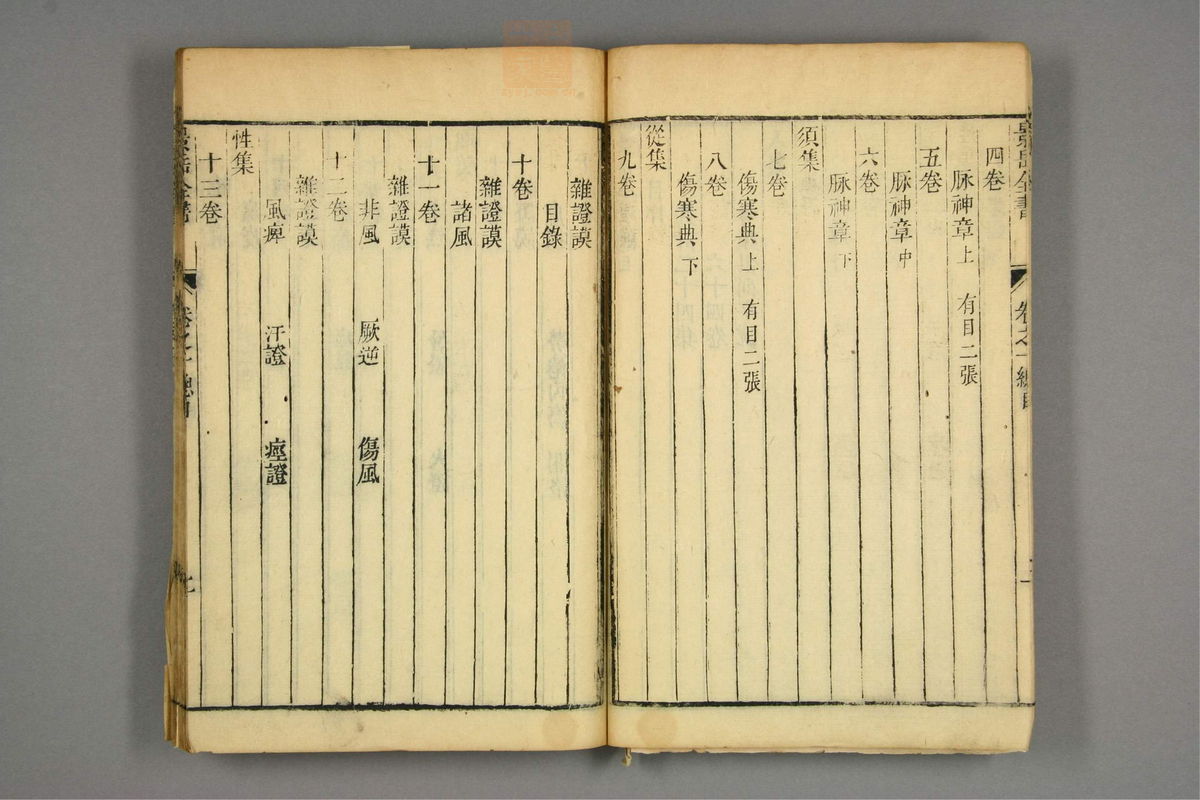 景岳全書 卷之一 總目
四卷
脉神章 上 有目二張
五卷
脉神章 中
六卷
脉神章 下
須集
七卷
傷寒典 上 有目二張
八卷
傷寒典 下
從集
九卷
雜證謨
目錄
十卷
雜證謨
諸風
十一卷
雜證謨
非風 厥逆 傷風
十二卷
雜證謨
風痺 汗證 痙證
性集
十三卷
景岳全書 卷之一 總目